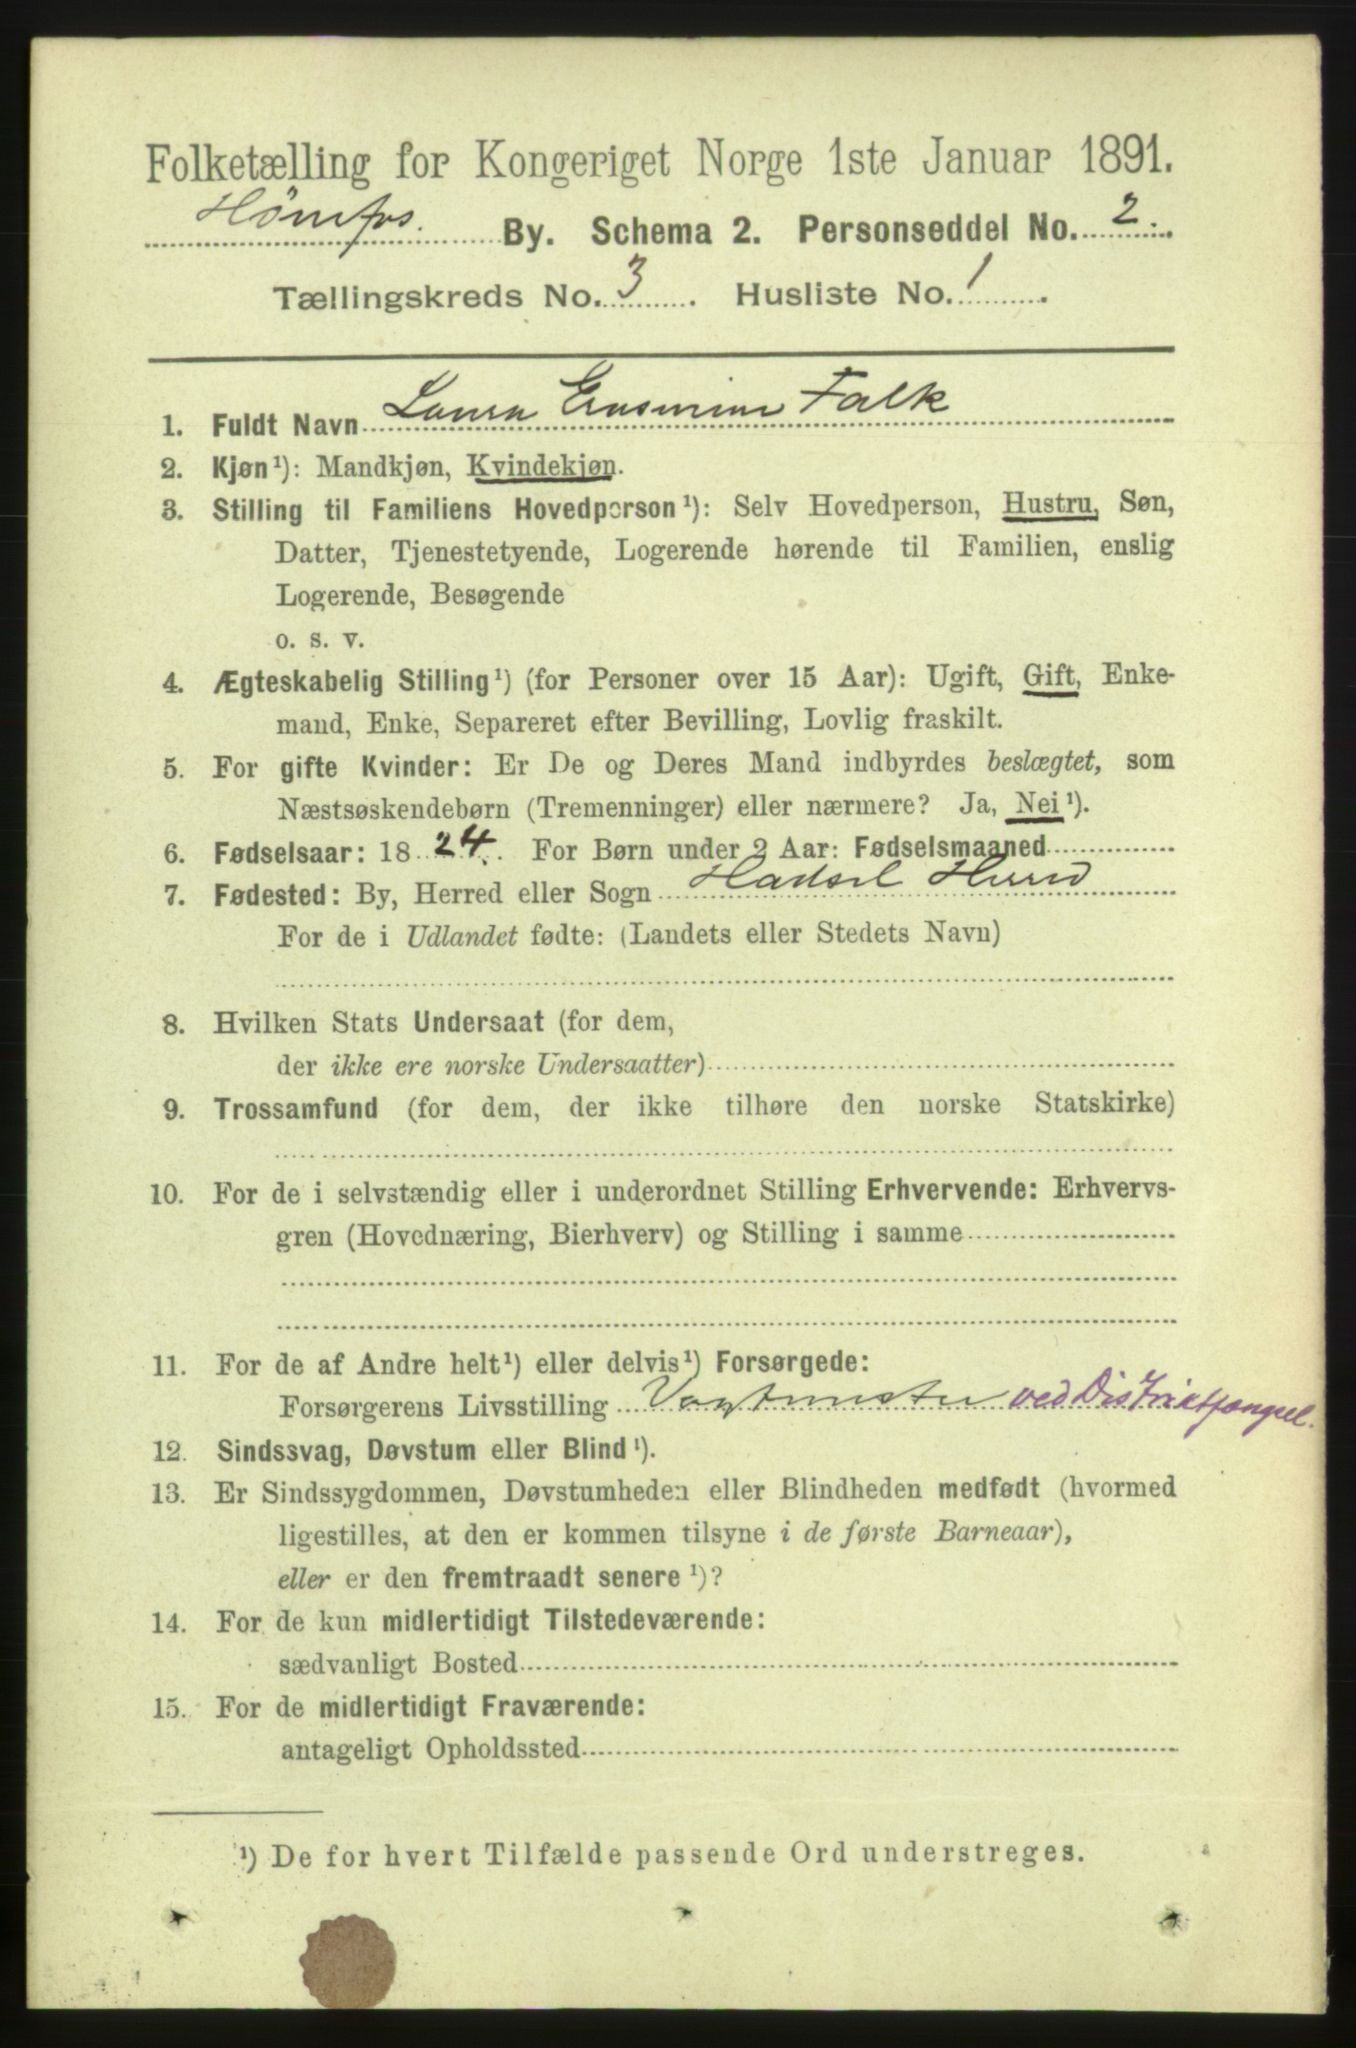 Folketælling for Kongeriget Norge 1ste Januar 1891.
Hønefos. By. Schema 2. Personseddel No. 2.
Tællingskreds No. 3. Husliste No. 1.
1. Fuldt Navn Laura Erasmine Falk
2. Kjøn¹): Mandkjøn, Kvindekjøn.
3. Stilling til Familiens Hovedperson¹): Selv Hovedperson, Hustru, Søn,
Datter, Tjenestetyende, Logerende hørende til Familien, enslig
Logerende, Besøgende
o. s. v.
4. Ægteskabelig Stilling¹) (for Personer over 15 Aar): Ugift, Gift, Enke-
mand, Enke, Separeret efter Bevilling, Lovlig fraskilt.
5. For gifte Kvinder: Er De og Deres Mand indbyrdes beslægtet, som
Næstsøskendebørn (Tremenninger) eller nærmere? Ja, Nei¹).
6. Fødselsaar: 1824. For Børn under 2 Aar: Fødselsmaaned
7. Fødested: By, Herred eller Sogn Hadsel Herred
For de i Udlandet fødte: (Landets eller Stedets Navn)
8. Hvilken Stats Undersaat (for dem,
der ikke ere norske Undersaatter)
9. Trossamfund (for dem, der ikke tilhøre den norske Statskirke)
10. For de i selvstændig eller i underordnet Stilling Erhvervende: Erhvervs-
gren (Hovednæring, Bierhverv) og Stilling i samme
11. For de af Andre helt¹) eller delvis¹) Forsørgede:
Forsørgerens Livsstilling Vagtmester ved Distriktfængsel.
12. Sindssvag, Døvstum eller Blind¹).
13. Er Sindssygdommen, Døvstumheden eller Blindheden medfødt (hvormed
ligestilles, at den er kommen tilsyne i de første Barneaar),
eller er den fremtraadt senere¹)?
14. For de kun midlertidigt Tilstedeværende:
sædvanligt Bosted
15. For de midlertidigt Fraværende:
antageligt Opholdssted
¹) De for hvert Tilfælde passende Ord understreges.